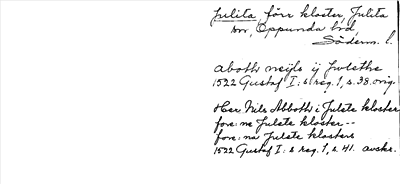 Julita, förr kloster, Julita
sn, Oppunda hd,
Söderm. l.
abothe neijls ij Jwlethe
1522 Gustaf I:s reg. 1, s. 38. orig.
Her Nils Abboth i Julete kloster
fore: ne Julete kloster --
fore: na Julete klosters
1522 Gustaf I:s reg. 1, s. 41. avskr.